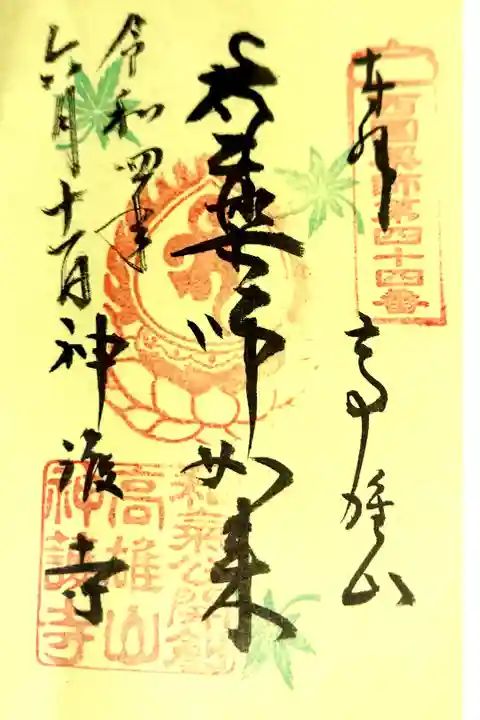 西国薬師第四十四番
奉拝
高雄山
薬師如来
令和四年
六月十一日
神護寺
和気公開創
高雄山
神護寺